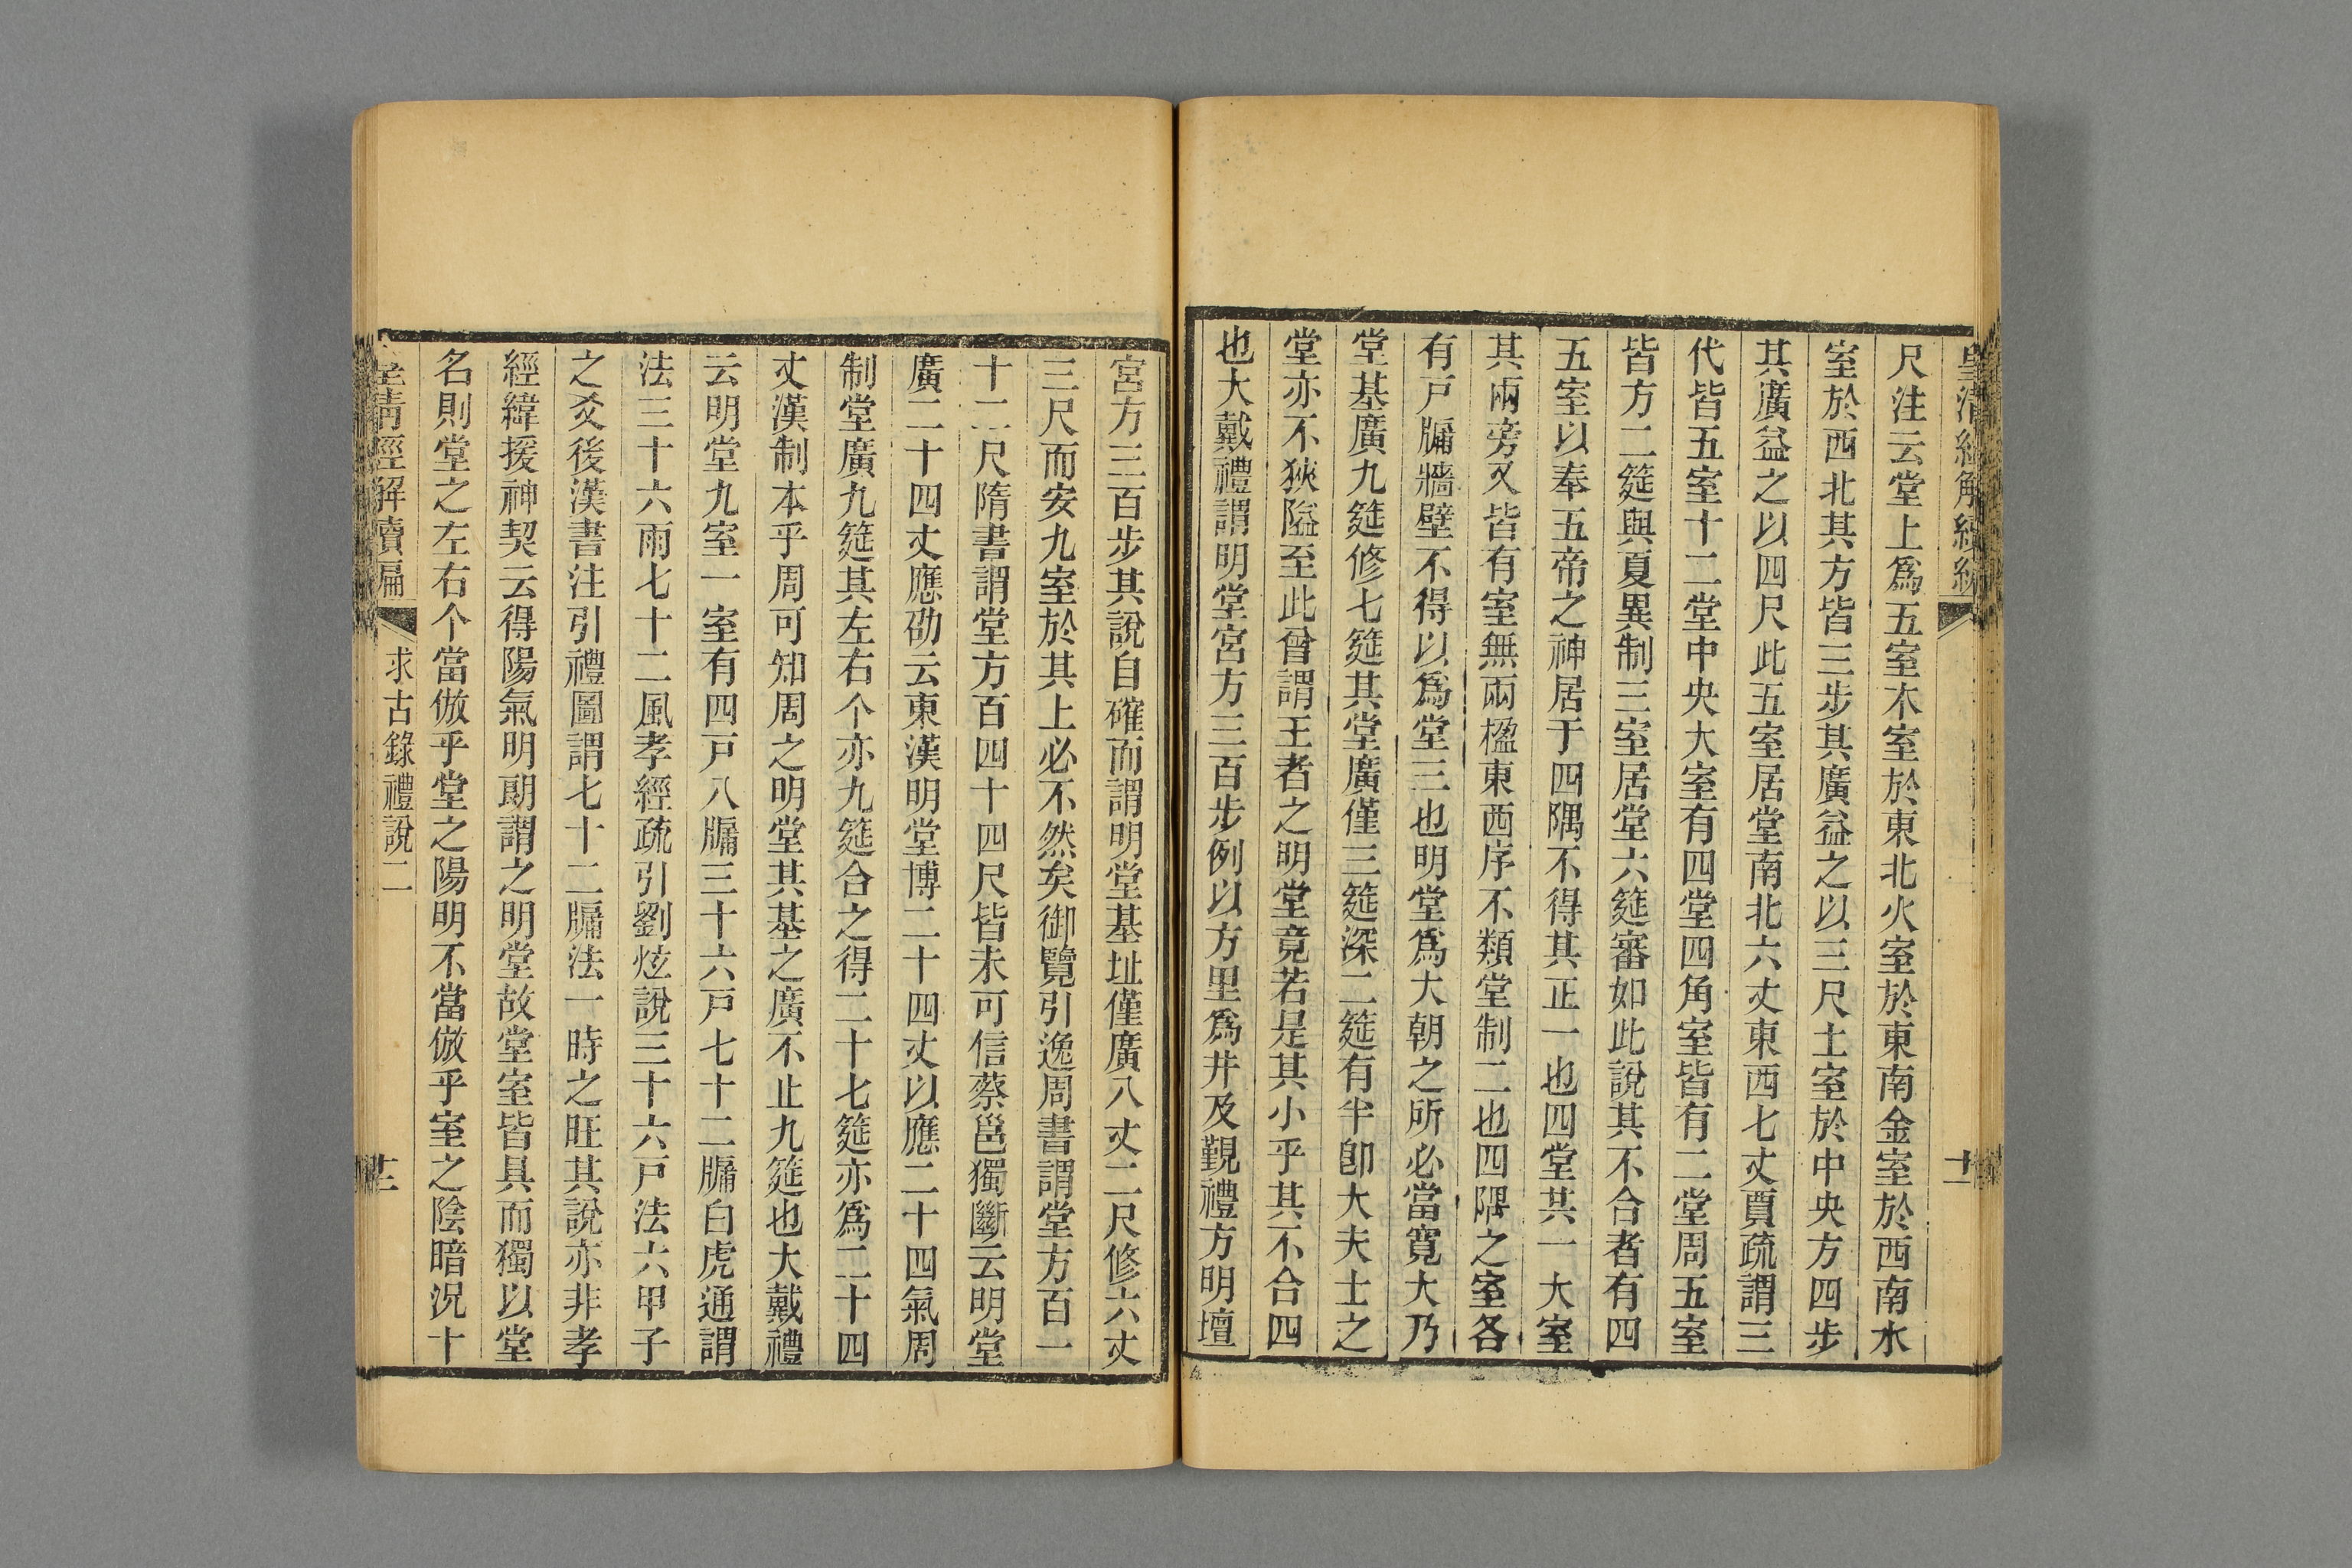 皇清經解續編
十二
尺注云堂上爲五室木室於東北火室於東南金室於西南水
室於西北其方皆三步其廣益之以三尺土室於中央方四步
其廣益之以四尺此五室居堂南北六丈東西七丈賈疏謂三
代皆五室十二堂中央大室有四堂四角室皆有二堂周五室
皆方二筵與夏異制三室居堂六筵審如此說其不合者有四
五室以奉五帝之神居于四隅不得其正一也四堂共一大室
其兩旁又皆有室無兩楹東西序不類堂制二也四隅之室各
有戸牖牆壁不得以爲堂三也明堂爲大朝之所必當寬大乃
堂基廣九筵修七筵其堂廣僅三筵深二筵有半卽大夫士之
堂亦不狹隘至此曾謂王者之明堂竟若是其小乎其不合四
也大戴禮謂明堂宮方三百步例以方里爲井及覲禮方明壇
宮方三百步其說自確而謂明堂基址僅廣八丈二尺修六丈
三尺而安九室於其上必不然矣御覽引逸周書謂堂方百一
十二尺隋書謂堂方百四十四尺皆未可信蔡邕獨斷云明堂
廣二十四丈應劭云東漢明堂博二十四丈以應二十四氣周
制堂廣九筵其左右个亦九筵合之得二十七筵亦爲二十四
丈漢制本乎周可知周之明堂其基之廣不止九筵也大戴禮
云明堂九室一室有四戸八牖三十六戸七十二牖白虎通謂
法三十六雨七十二風孝經疏引劉炫說三十六戸法六甲子
之爻後漢書注引禮圖謂七十二牖法一時之旺其說亦非孝
經緯援神契云得陽氣明朗謂之明堂故堂室皆具而獨以堂
名則堂之左右个當倣乎堂之陽明不當倣乎室之陰暗況十
皇清經解續編
求古錄禮說二
十三